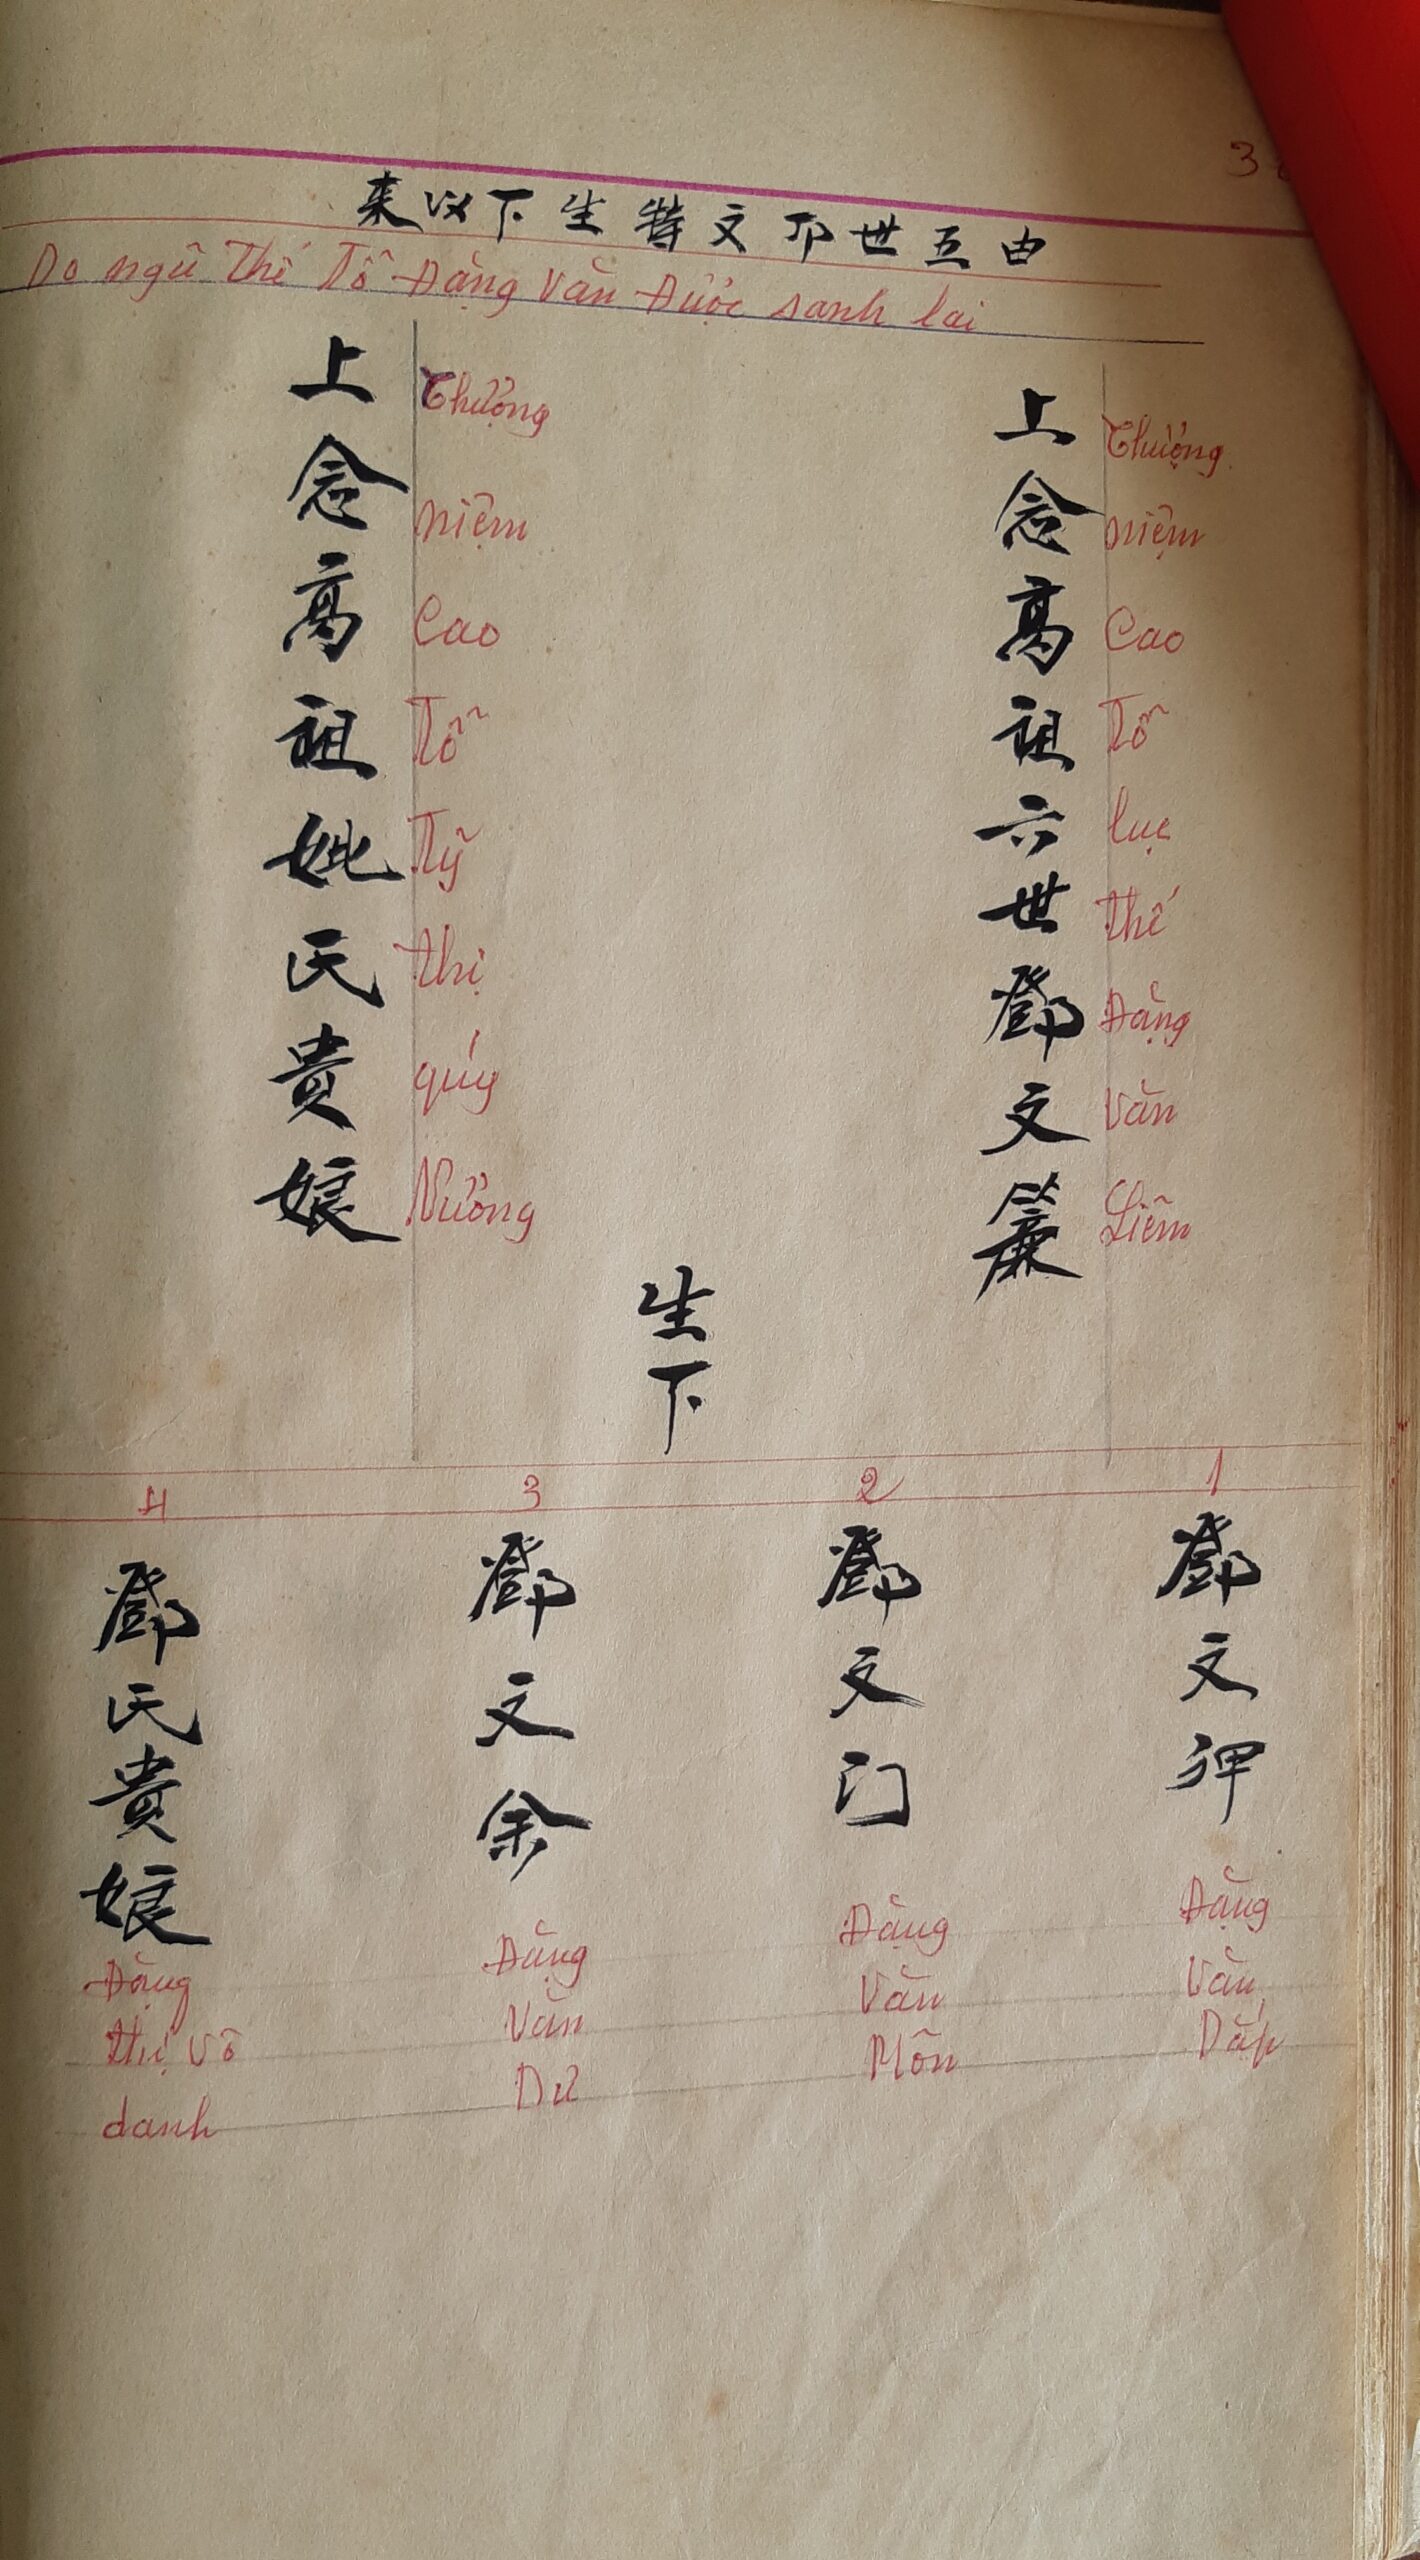 由五世卩文特生下以来
Do ngũ Thế Tổ Đặng Văn Được sanh lai
上念高祖六世鄧文簾
Thượng
niệm
Cao
Tổ
lục
thế
Đặng
Văn
Liêm
上念高祖妣氏貴娘
Thượng
niệm
Cao
Tổ
Tỹ
thị
quý
Nương
生下
1
鄧文押
Đặng
Văn
Dáp
2
鄧文门
Đặng
Văn
Môn
3
鄧文余
Đặng
Văn
Dư
4
鄧氏貴娘
Đặng
thị vô
danh